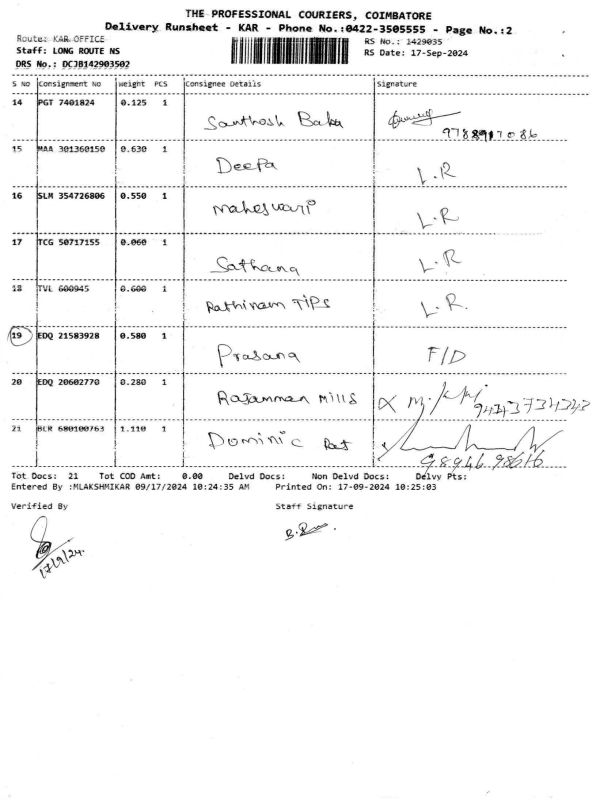 THE PROFESSIONAL COURIERS, COIMBATORE
Delivery Runsheet - KAR - Phone No.:0422-3505555 - Page No.:2
Route: KAR OFFICE
RS No.: 1429035
Staff: LONG ROUTE NS
RS Date: 17-Sep-2024
DRS No.: DCJB142903502
S No Consignment No Weight PCS Consignee Details Signature
14 PGT 7401824 0.125 1
Santhosh Baba
15 MAA 301360150 0.630 1
Deepa L.R
16 SLM 354726806 0.550 1
Maheswari L.R
17 TCG 50717155 0.060 1
Sathana L.R
18 TVL 600945 0.600 1
Rathinam TIPS L.R.
19 EDQ 21583928 0.580 1
Prasana F/D
20 EDQ 20602770 0.280 1
Rajamman Mills
21 BLR 680100763 1.110 1
Dominic
98946 98616
Tot Docs: 21 Tot COD Amt: 0.00 Delvd Docs: Non Delvd Docs: Delvy Pts:
Entered By :MLAKSHMIKAR 09/17/2024 10:24:35 AM Printed On: 17-09-2024 10:25:03
Verified By Staff Signature
17/9/24.